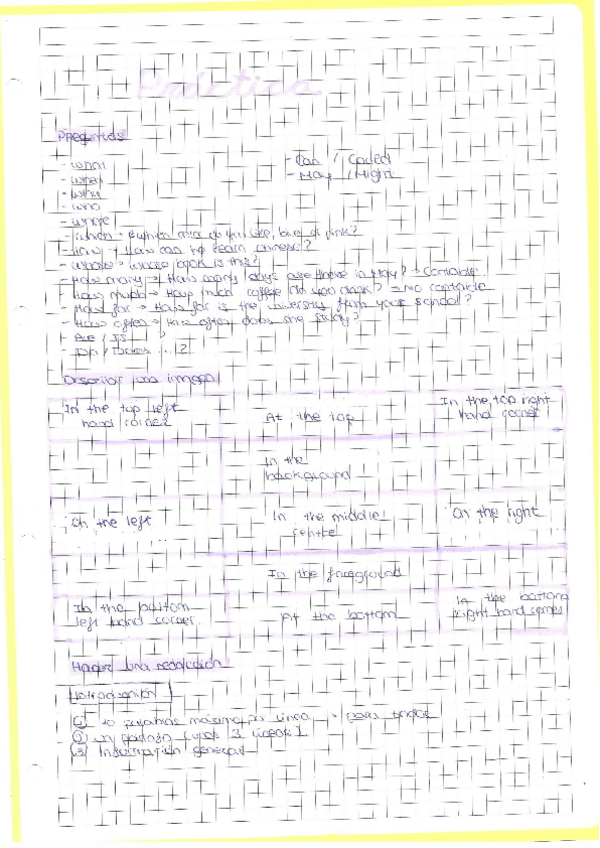 Práctica
Preguntas
- what
- Can / Could
- May / Might
- who
- where
- which → which
- How → How can he learn
- whose → whose book is this?
- How many → How many days are there in May? → Contable
How much → How much coffee do you drink? → No contable
- How far → How far is the university from your school?
- How often → How often does she study?
- Are / Is ?
- Do / Does ... ?
Describir una imagen
In the top left
hand corner
At the top
In the top right
hand corner
In the
background
On the left
In the middle/
centre
On the right
In the foreground
In the bottom
left hand corner
At the bottom
In the bottom
right hand corner
Hacer una redacción
Introducción
① 10 palabras línea
② un (unas 3 líneas)
③ Información general